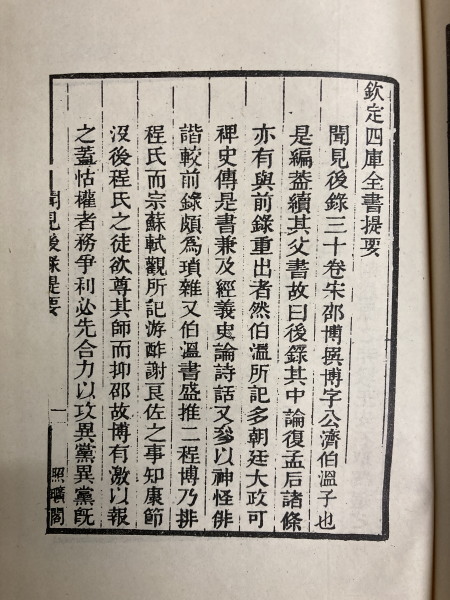 欽定四庫全書提要
聞見後錄三十卷宋邵博撰博字公濟伯溫子也
是編蓋續其父書故曰後錄其中論復孟后諸條
亦有與前錄重出者然伯溫所記多朝廷大政可
裨史傳是書兼及經義史論詩話又參以神怪俳
諧較前錄頗為瑣雜又伯溫書盛推二程博乃排
程氏而宗蘇軾觀所記游酢謝良佐之事知康節
沒後程氏之徒欲尊其師而抑邵故博有激以報
之蓋怙權者務爭利必先合力以攻異黨異黨既
聞見後錄提要
一
照曠閣